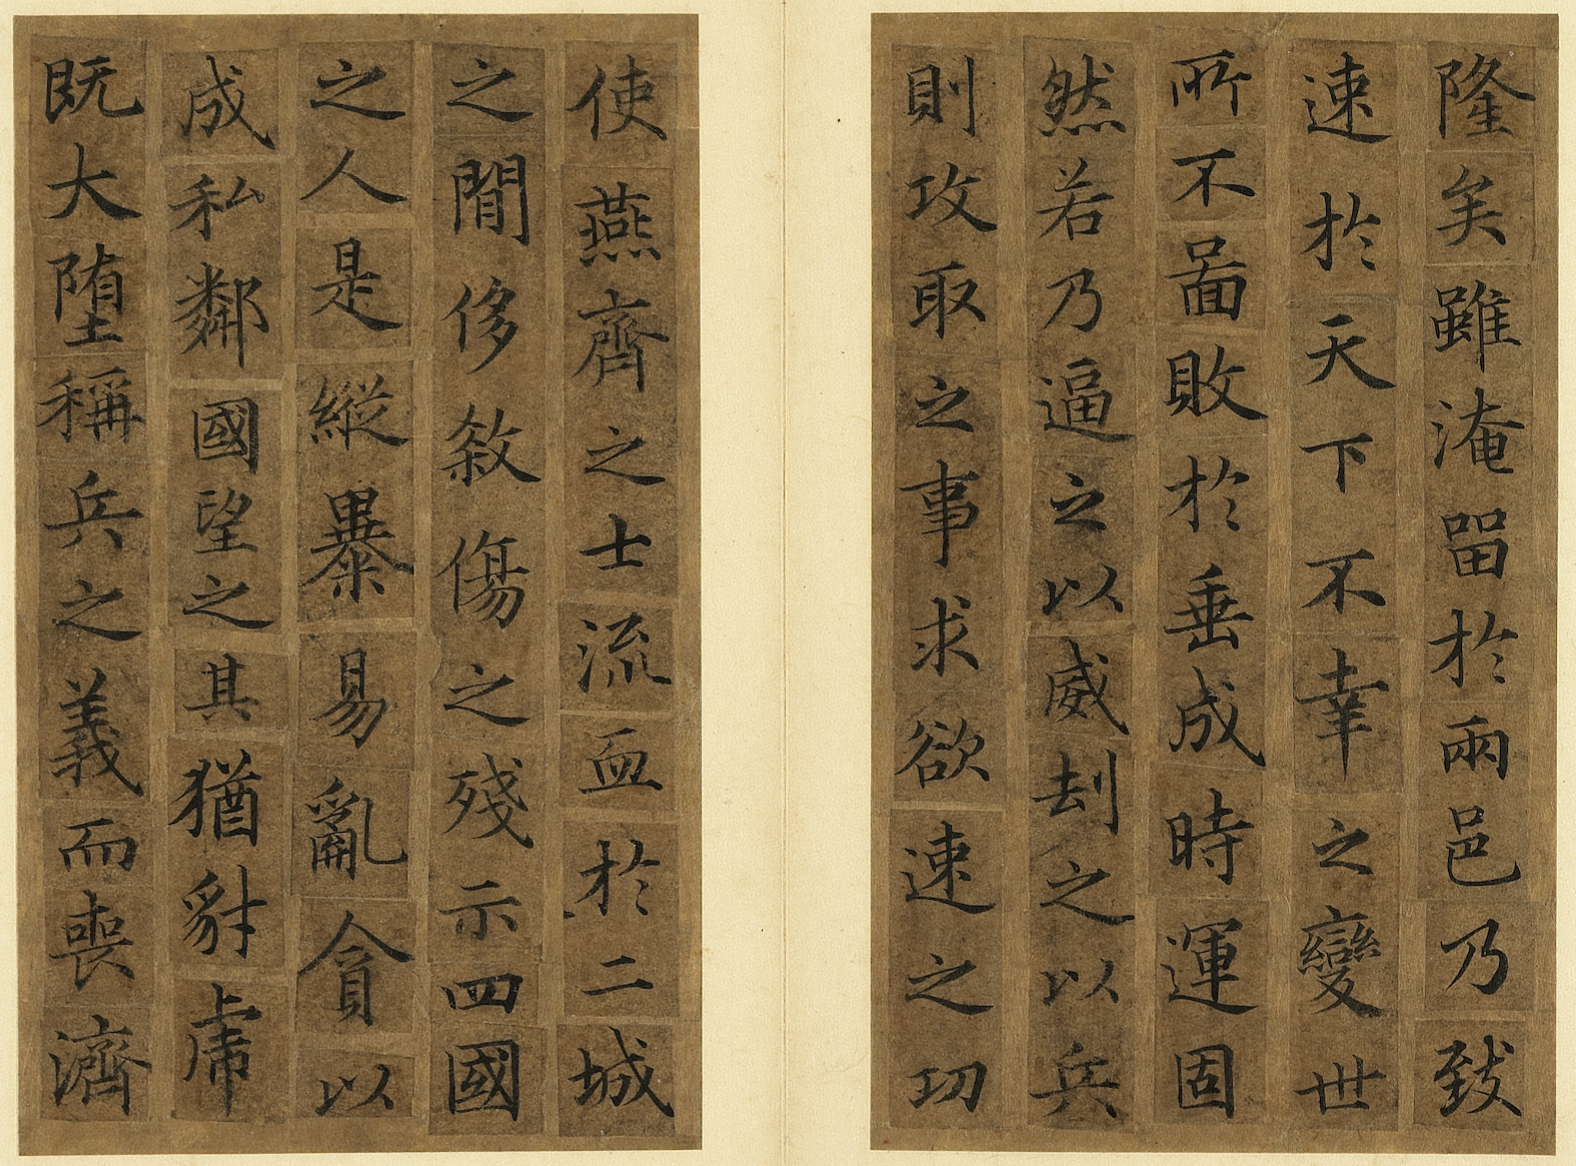 隆矣雖淹留於兩邑乃致
速於天下不幸之變世
所不啚敗於垂成時運固
然若乃逼之以威刼之以兵
則攻取之事求欲速之功
使燕齊之士流血於二城
之閒侈殺傷之殘示四國
之人是縱暴易亂貪以
成私鄰國望之其猶豺虎
既大堕稱兵之義而喪濟